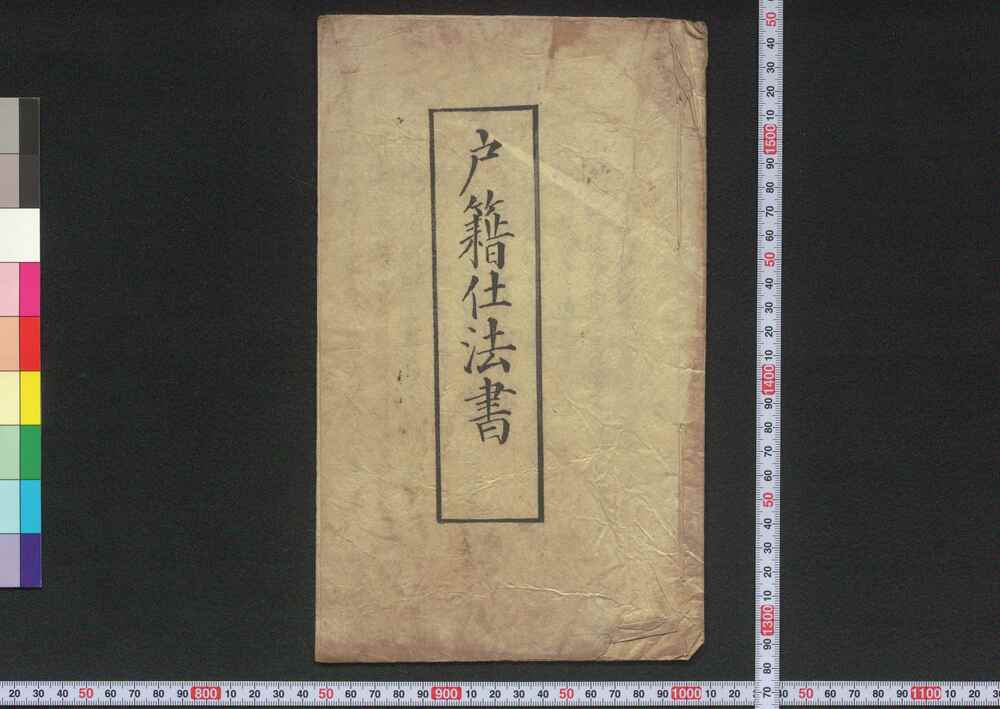 戸籍仕法書
50
40
30
20
10
1500
90
80
70
60
50
40
30
20
10
1400
90
80
70
60
50
40
30
20
10
1300
90
80
70
20 30 40 50 60 70 80 90 800 10 20 30 40 50 60 70 80 90 900 10 20 30 40 50 60 70 80 90 1000 10 20 30 40 50 60 70 80 90 1100 10 20